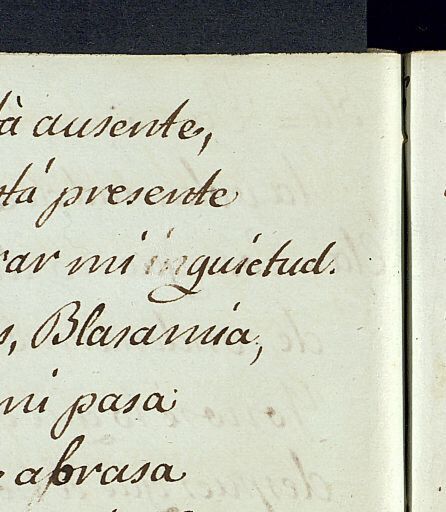 tà ausente,
stá presente
rar mi inquietud.
s, Blasamia,
mi pasa
e abrasa